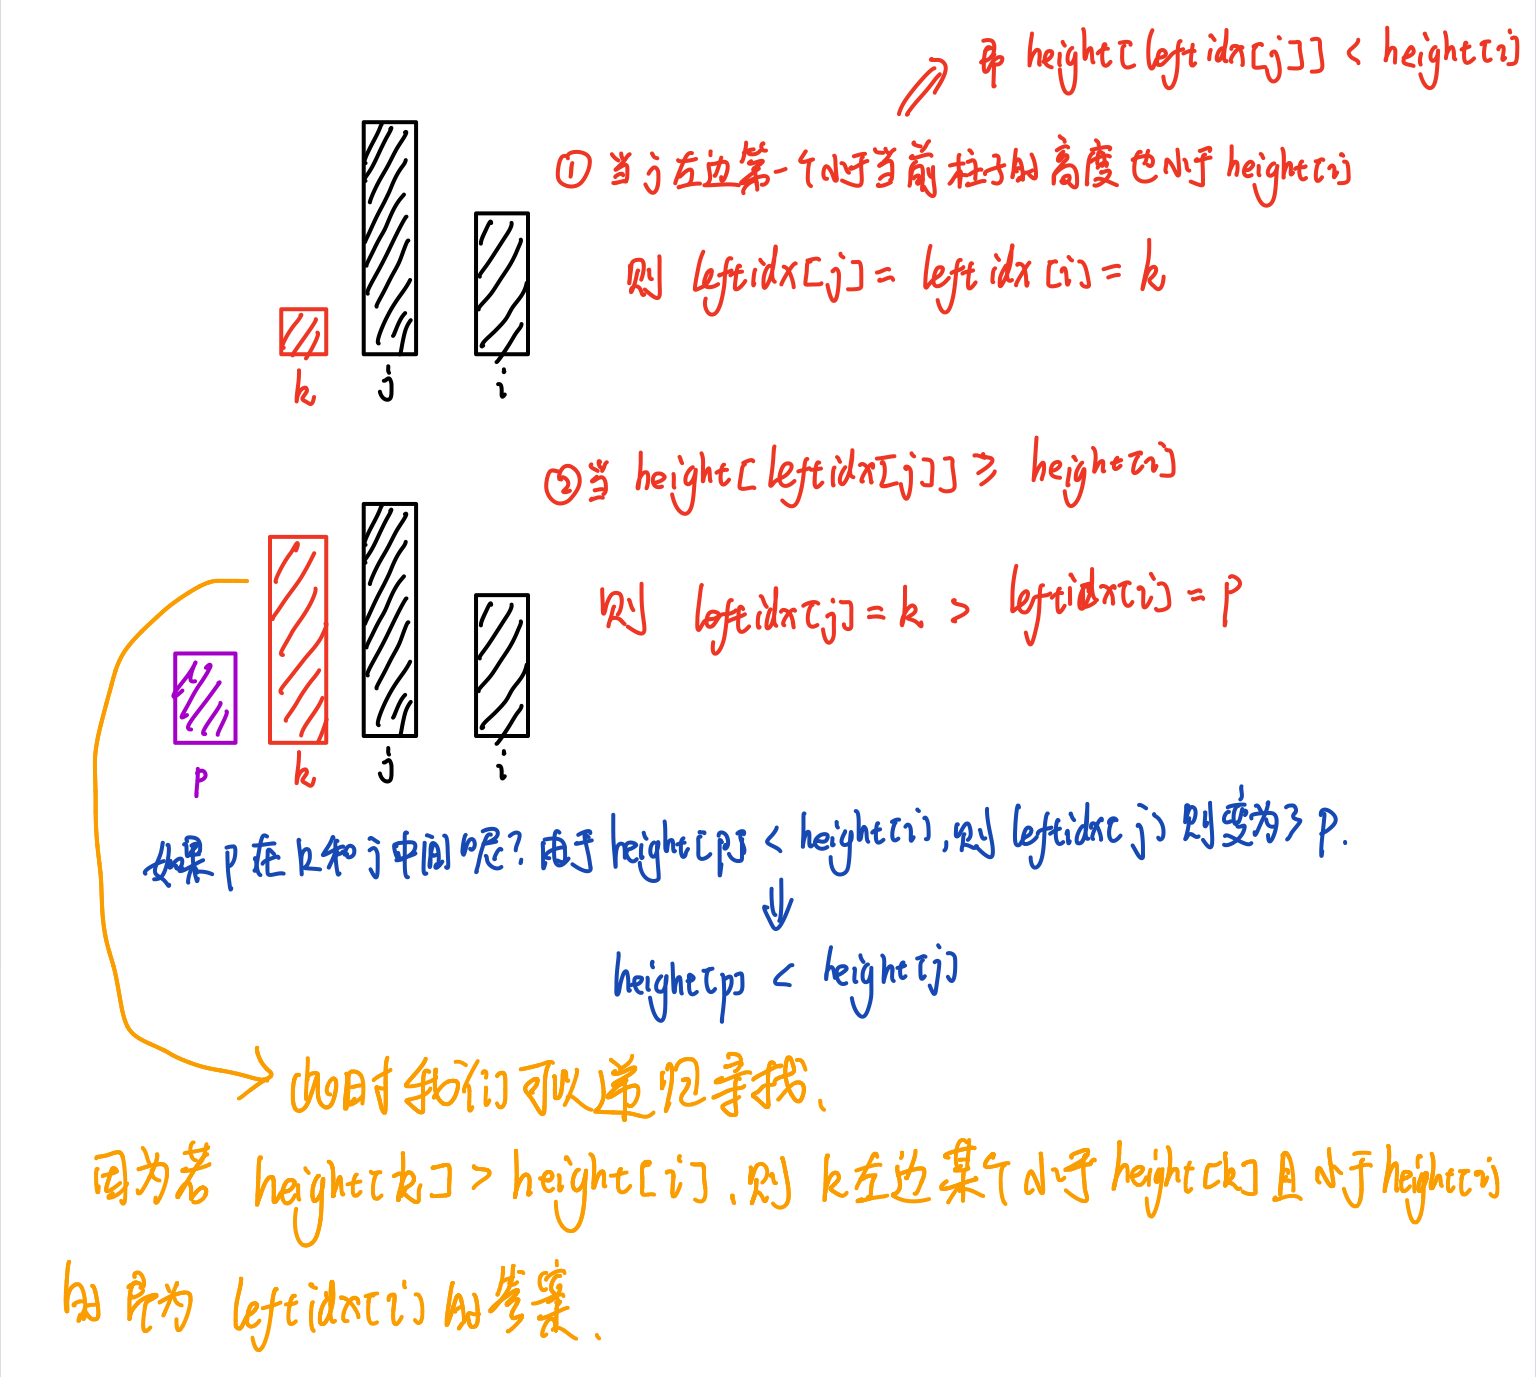 即 height[leftidx[j]] < height[i]
① 当 j 左边第一个小于当前柱子的高度也小于 height[i]
则 leftidx[j] = leftidx[i] = k
k j i
② 当 height[leftidx[j]] ≥ height[i]
则 leftidx[j] = k > leftidx[i] = p
p k j i
如果 p 在 k 和 j 中间呢? 由于 height[p] < height[i], 则 leftidx[j] 则变为了 p.
height[p] < height[j]
此时我们可以递归寻找.
因为若 height[k] > height[i], 则 k 左边某个小于 height[k] 且小于 height[i]
的 即为 leftidx[i] 的答案.